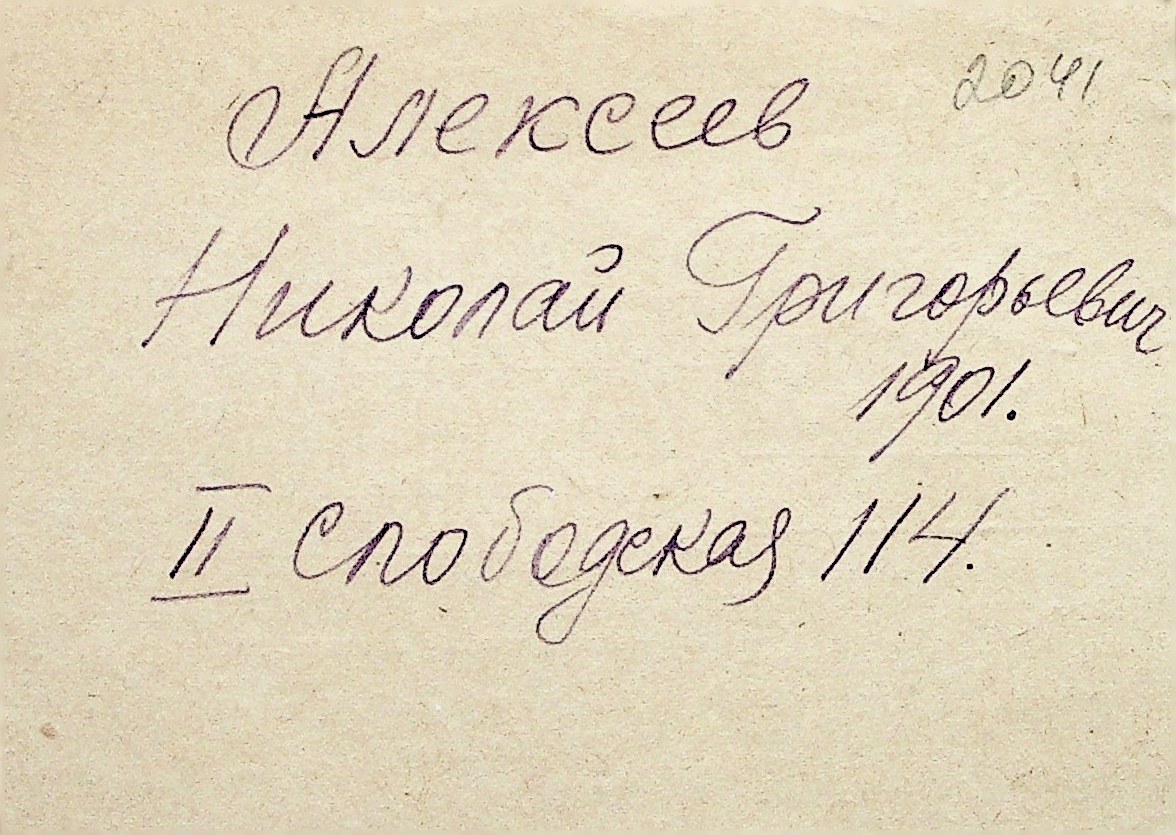 Алексеев 2041
Николай Григорьевич
1901.
II Слободская 114.